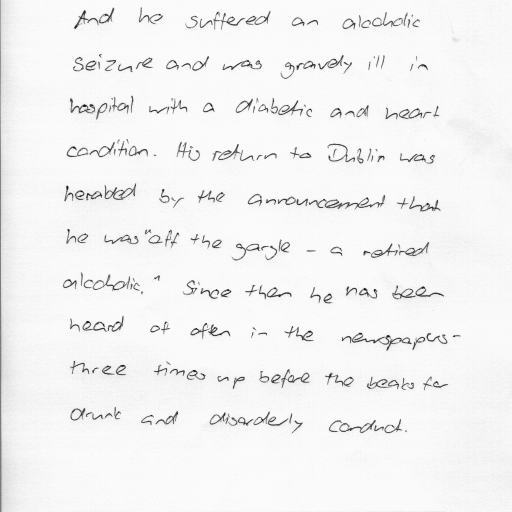 And he suffered an alcoholic
seizure and was gravely ill in
hospital with a diabetic and heart
condition. His return to Dublin was
heralded by the announcement that
he was "off the gargle - a retired
alcoholic." Since then he has been
heard of often in the newspapers-
three times up before the beaks for
drunk and disorderly conduct.